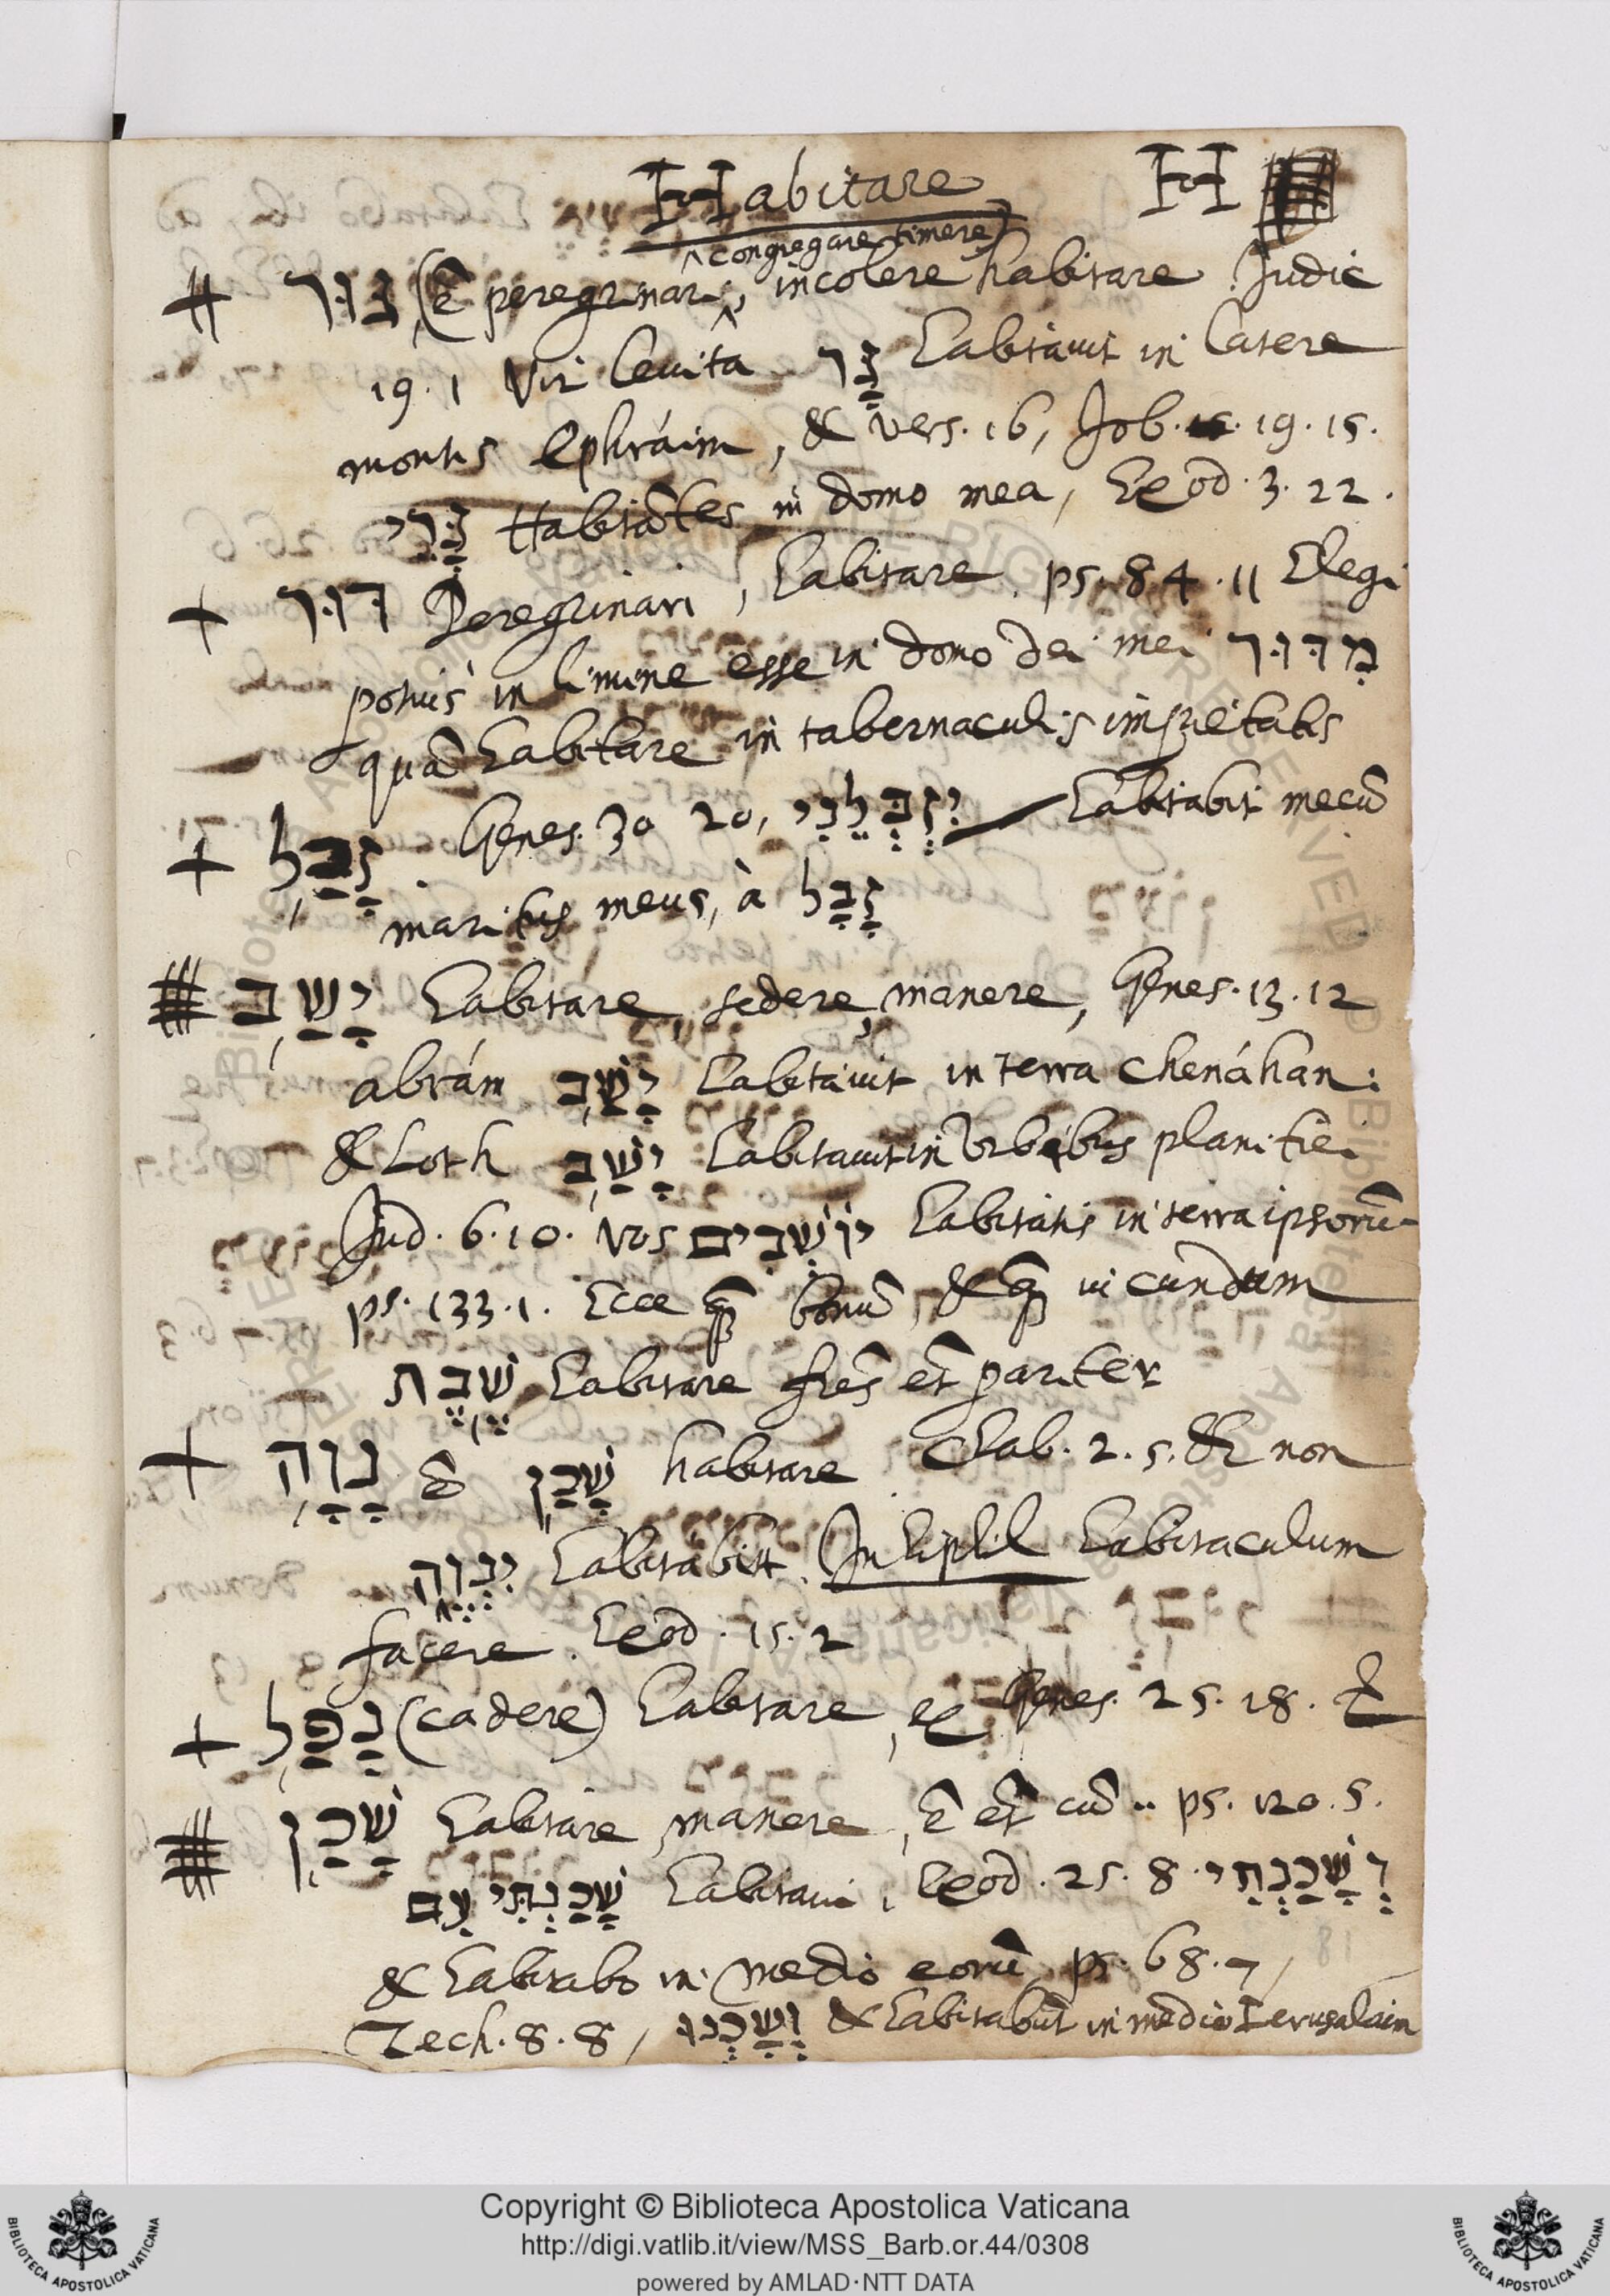 Habitare H
congregare timere)
גּוּר (ē peregrinari, incolere habitare Judic
19. 1 Vir levita גָּר habitavit in latere
montis Ephráim, & vers. 16, Job. 19. 15.
גָּרֵי Habitãtes in domo mea, Exod. 3. 22.
דּוּר Peregrinari, habitare. ps. 84. 11 Elegi
potius in limine esse in domo dei mei מִדּוּר
quā habitare in tabernaculis impietatis
זָבַל Genes. 30 20, יִזְבְּלֵנִי habitabit mecū
maritus meus, à זָבַל
יָשַׁב habitare, sedere, manere, Genes. 13. 12
abrám יָשַׁב habitavit in terra Chenáhan:
& Loth יָשַׁב habitavit in Urbibus planitiei
Jud. 6. 10. vos יוֹשְׁבִים habitatis in terra ipsorū
ps. 133. 1. Ecce q̃ bonū, & q̃ iucundum
שֶׁבֶת habitare frēs et pariter
נָוָה שָׁכַן habitare Chab. 2. 5. & non
יִנְוֶה habitabit. In hiphil habitaculum
facere. Exod. 15. 2
נָפַל (cadere) habitare, ex Genes. 25. 18.
שָׁכַן habitare, manere, ē et cū .. ps. 120. 5.
שָׁכַנְתִּי עִם habitavi, Exod. 25. 8. וְשָׁכַנְתִּי
& habitabo in medio eorū ps. 68. 7,
Zech. 8. 8, וְשָׁכְנוּ & habitabūt in medio Ierusalaim
Copyright © Biblioteca Apostolica Vaticana
http://digi.vatlib.it/view/MSS_Barb.or.44/0308
powered by AMLAD·NTT DATA
BIBLIOTECA APOSTOLICA VATICANA
BIBLIOTECA APOSTOLICA VATICANA